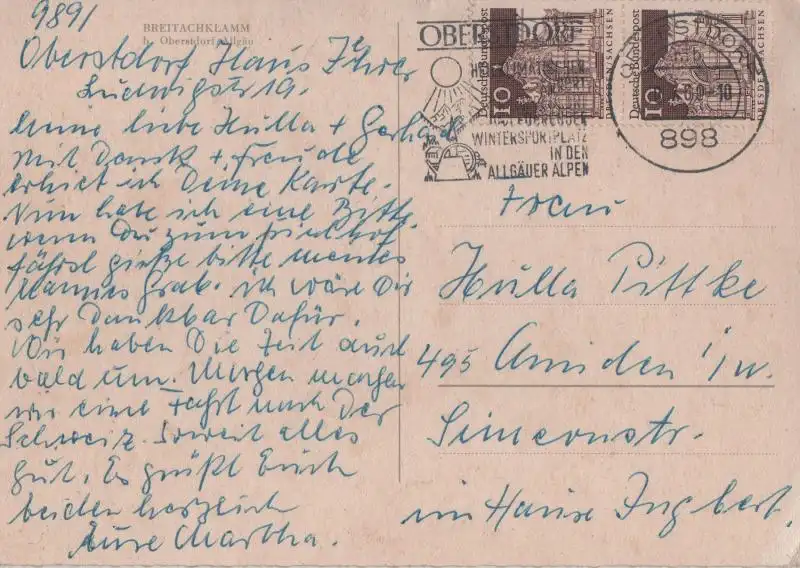 9891
BREITACHKLAMM
b. Oberstdorf/Allgäu
Oberstdorf Haus Führer
Ludwigstr 19.
Meine liebe Hulla + Gerhard
Mit Dank + Freude
erhielt ich Deine Karte.
Nun habe ich eine Bitte
wenn Du zum Friedhof
fährst gieße bitte meines
Mannes Grab. ich wäre Dir
sehr Dankbar Dafür.
Wir haben Die Zeit auch
bald um. Morgen machen
wir eine Fahrt nach der
Schweiz. Soweit alles
gut. Es grüßt Euch
beiden herzlich
Eure Martha.
OBERSTDORF
WINTERSPORTPLATZ
IN DEN
ALLGÄUER ALPEN
Deutsche Bundespost
10
DRESDEN/SACHSEN
Deutsche Bundespost
10
DRESDEN/SACHSEN
OBERSTDORF
898
Frau
Hulla Pittke
495 Minden i/w.
Simeonstr.
im Hause Ingbert.